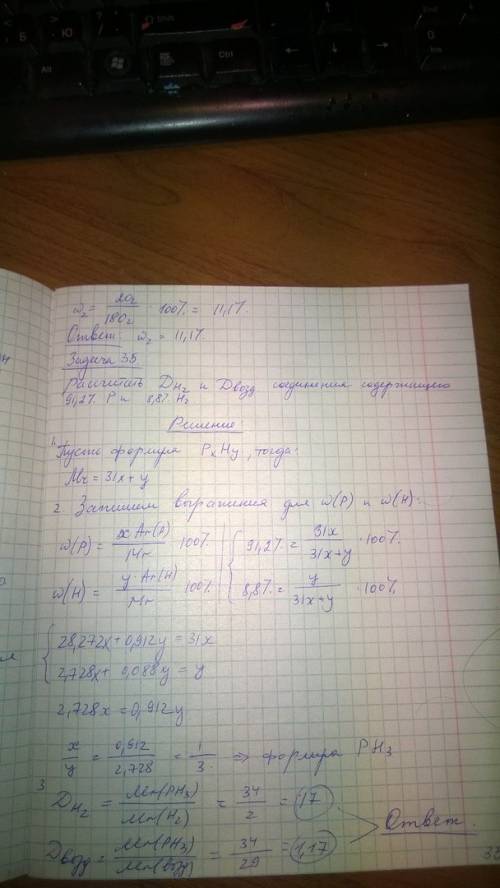 Shift
End
Alt
Ctrl
Б
Ю
ω₂ = 20г/180г 100% = 11,1%
Ответ: ω₂ = 11,1%
Задача 35
Рассчитать D H₂ и D возд соединения содержащего
91,2% P и 8,8% H₂
Решение:
1. Пусть формула PxHy, тогда:
Mr = 31x + y
2. Запишем выражения для ω(P) и ω(H):
ω(P) = x·Ar(P)/Mr 100% 91,2% = 31x/(31x+y) · 100%
ω(H) = y·Ar(H)/Mr 100% 8,8% = y/(31x+y) · 100%
28,272x + 0,912y = 31x
2,728x + 0,088y = y
2,728x = 0,912y
x/y = 0,912/2,728 = 1/3 ⇒ формула PH₃
3. D H₂ = Mr(PH₃)/Mr(H₂) = 34/2 = 17
Ответ.
D возд = Mr(PH₃)/Mr(возд) = 34/29 = 1,17